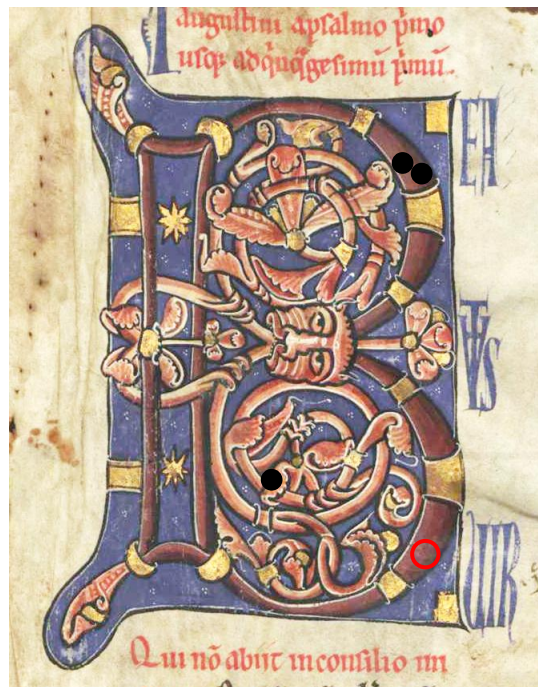 augustini apsalmo p̄mo
usq; adq̄nq̄gesimū p̄mū.
B
EA
TVS
VIR
Qui nō abiit inconsilio im